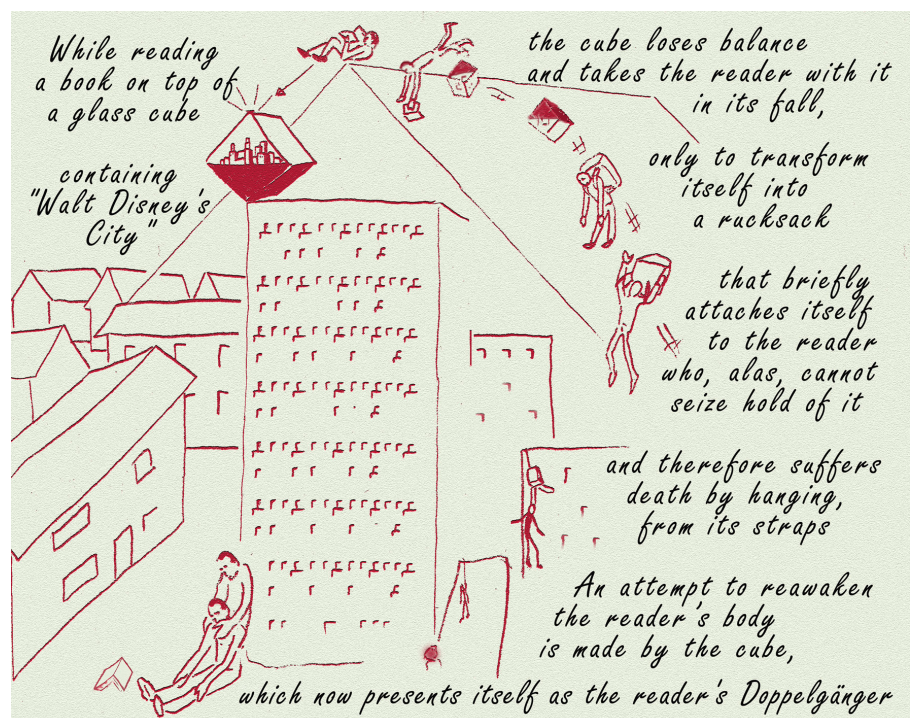 While reading
a book on top of
a glass cube
containing
"Walt Disney's
City"
the cube loses balance
and takes the reader with it
in its fall,
only to transform
itself into
a rucksack
that briefly
attaches itself
to the reader
who, alas, cannot
seize hold of it
and therefore suffers
death by hanging,
from its straps
An attempt to reawaken
the reader's body
is made by the cube,
which now presents itself as the reader's Doppelgänger